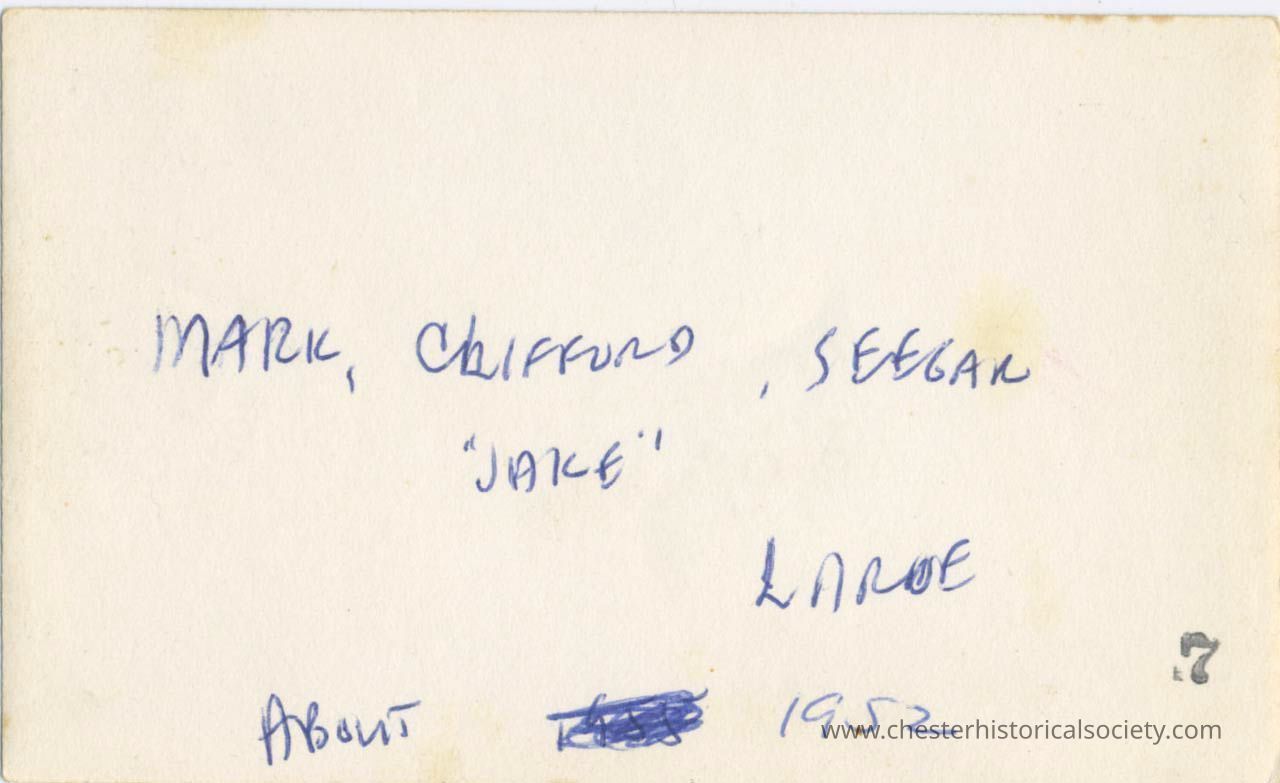 MARK, CLIFFORD, SEEGAR
"JAKE"
LAROE
7
ABOUT 1952
www.chesterhistoricalsociety.com